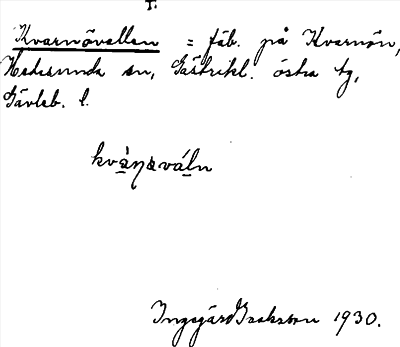 T.
Kvarnövallen = fäb. på Kvarnön,
Hedesunda sn, Gästrikl. östra tg,
Gävleb. l.
kvàṇøváln
Ingegärd Isaksson 1930.